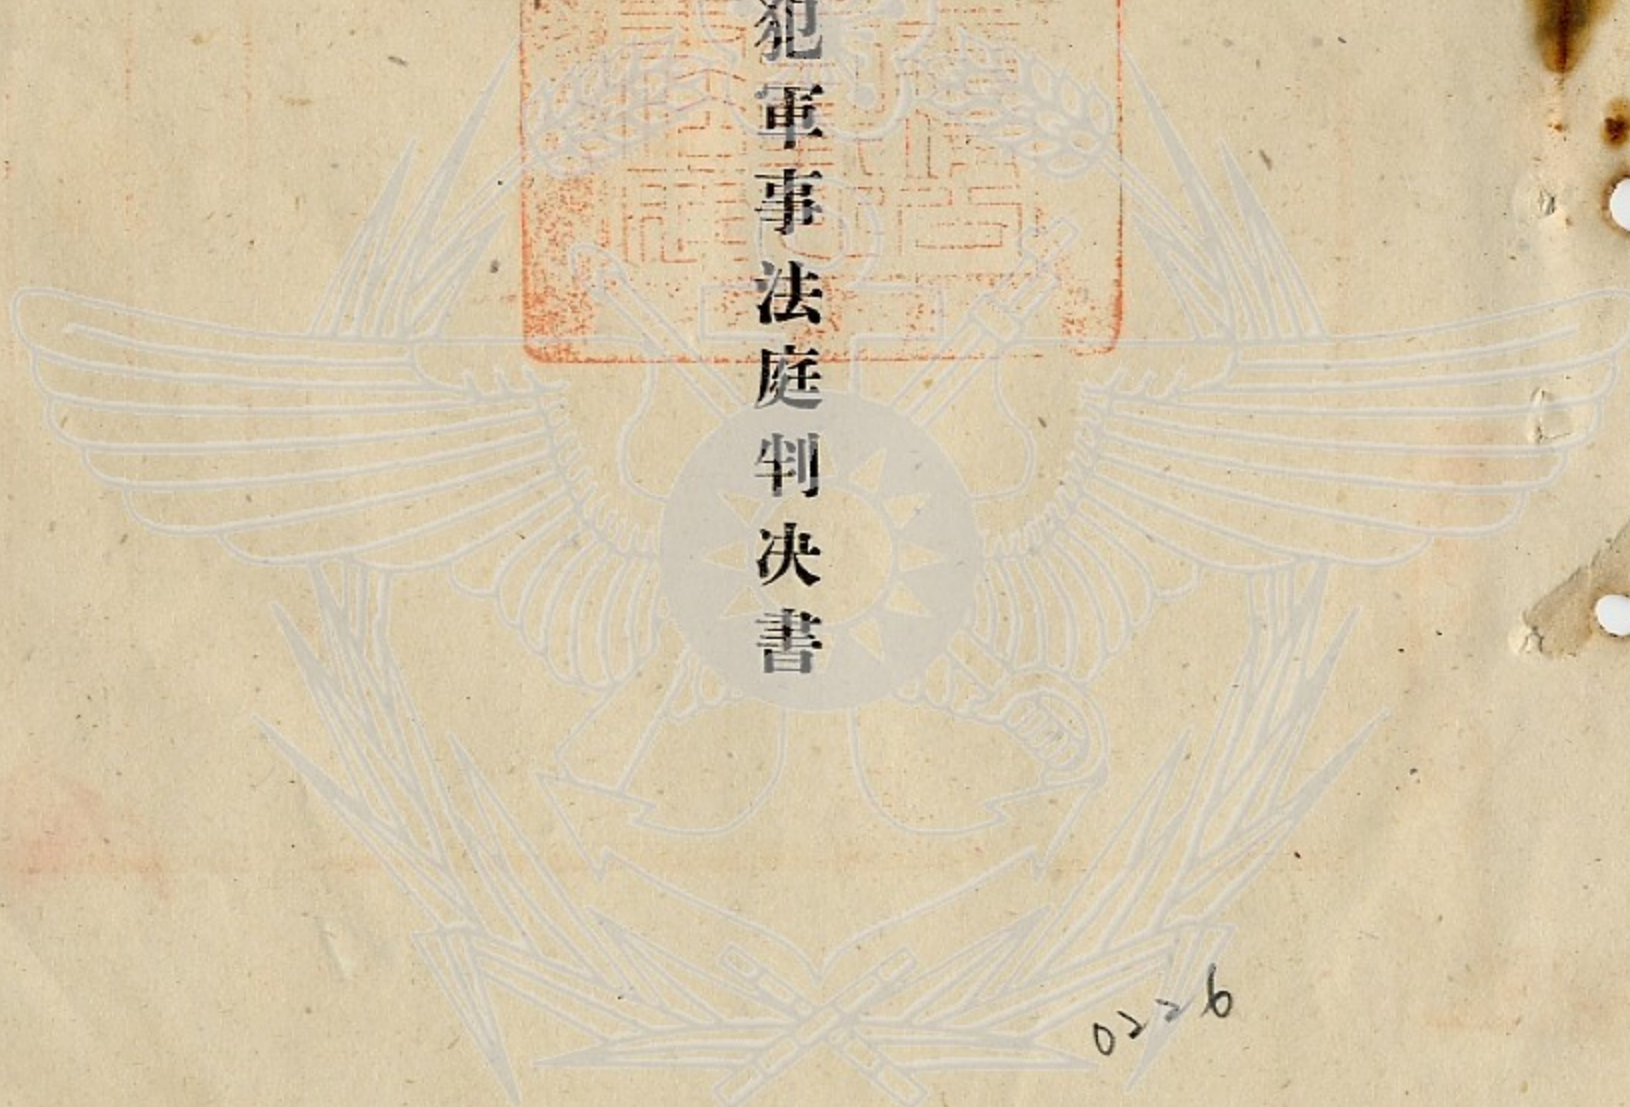 犯軍事法庭判决書
0226